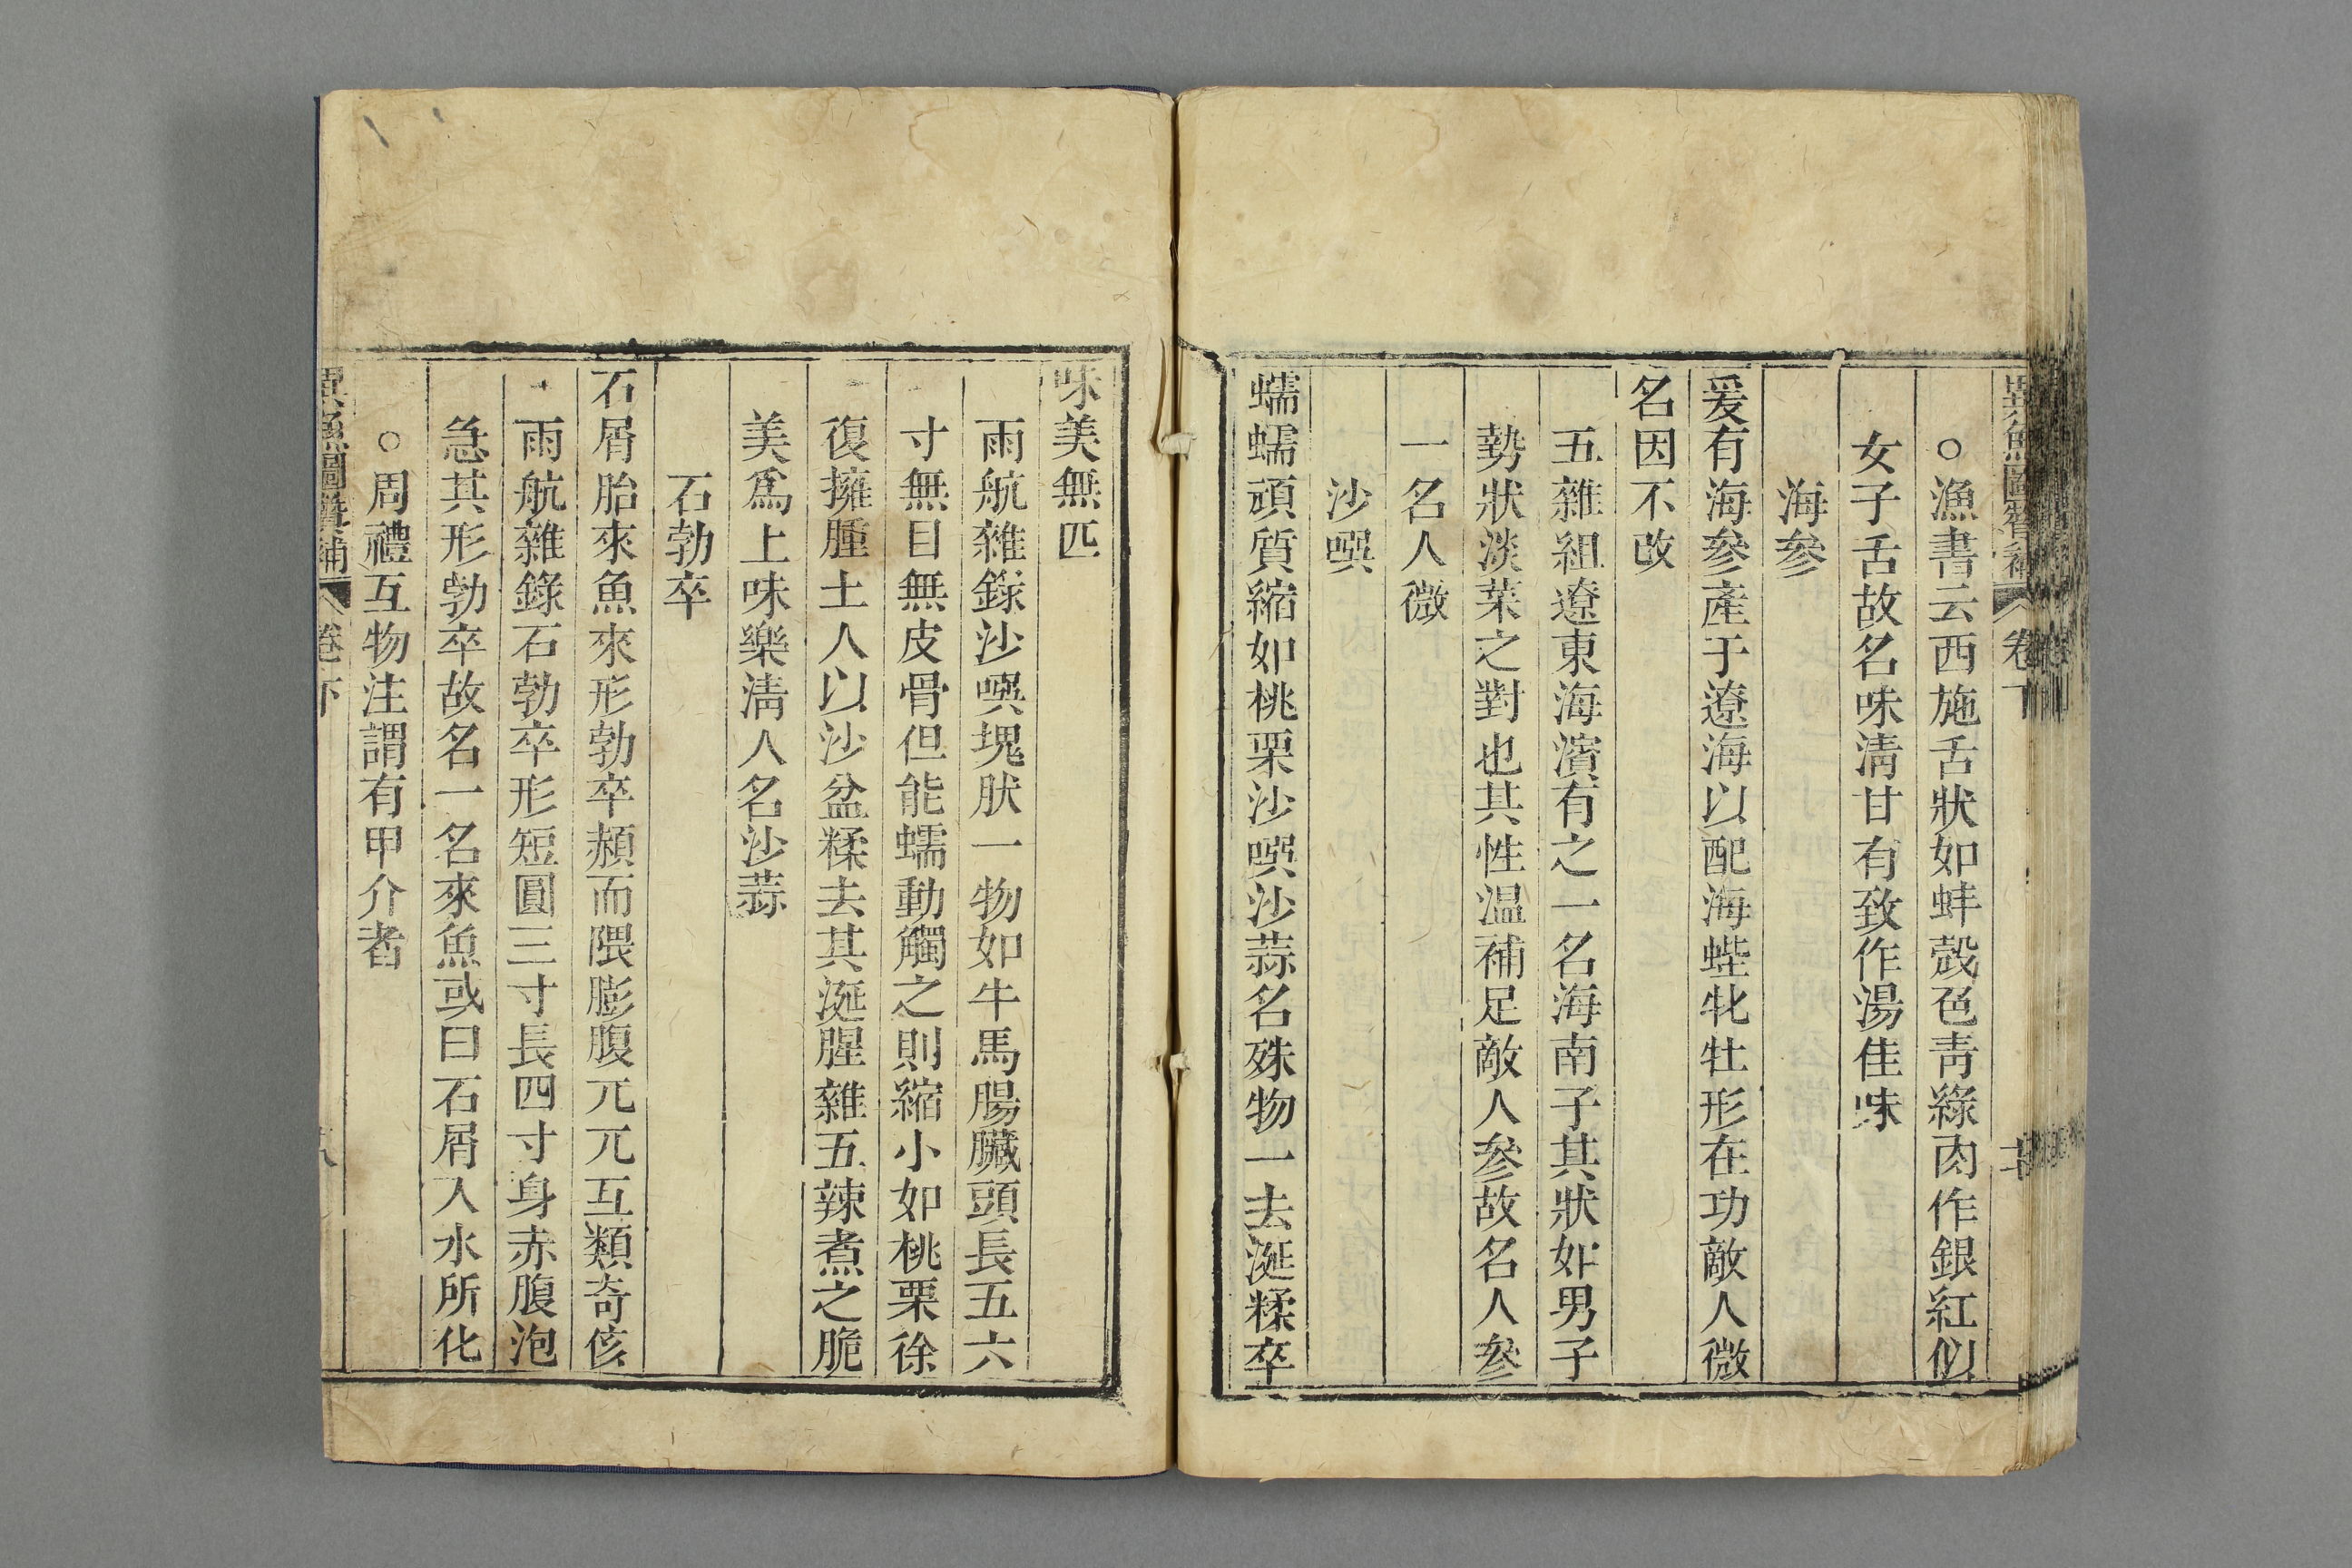 異魚圖贊補 卷下
○漁書云西施舌狀如蚌殼色靑綠肉作銀紅似
女子舌故名味淸甘有致作湯佳味
海參
爰有海參產于遼海以配海蜌牝牡形在功敵人微
名因不改
五雜組遼東海濱有之一名海南子其狀如男子
勢狀淡菜之對也其性温補足敵人參故名人參
一名人微
沙噀
蠕蠕頑質縮如桃栗沙噀沙蒜名殊物一去涎糅卒
味美無匹
雨航雜錄沙噀塊肰一物如牛馬腸臟頭長五六
寸無目無皮骨但能蠕動觸之則縮小如桃栗徐
復擁腫土人以沙盆糅去其涎腥雜五辣煮之脆
美爲上味樂淸人名沙蒜
石勃卒
石屑胎來魚來形勃卒赬而隈膨腹兀兀互類奇侅
雨航雜錄石勃卒形短圓三寸長四寸身赤腹泡
急其形勃卒故名一名來魚或曰石屑入水所化
○周禮互物注謂有甲介者
異魚圖贊補 卷下